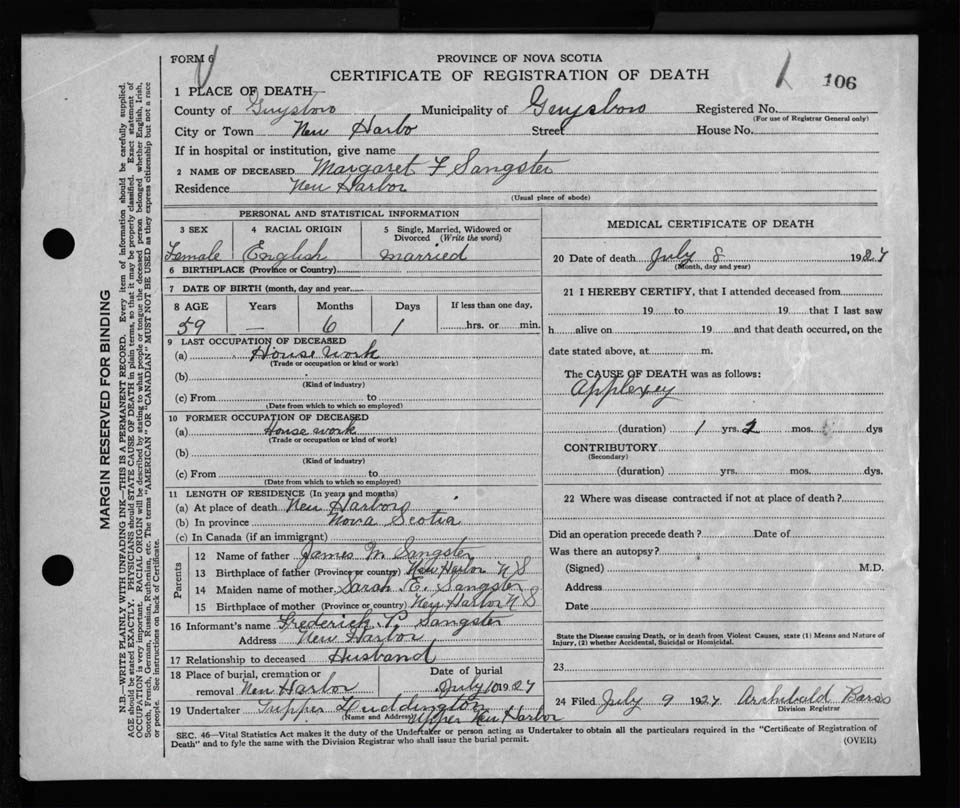 FORM 6
PROVINCE OF NOVA SCOTIA
CERTIFICATE OF REGISTRATION OF DEATH
106
1 PLACE OF DEATH—
County of Guysboro Municipality of Guysboro Registered No.
(For use of Registrar General only)
City or Town New Harbo Street House No.
If in hospital or institution, give name
2 NAME OF DECEASED Margaret F Sangster
Residence New Harbor
(Usual place of abode)
PERSONAL AND STATISTICAL INFORMATION
3 SEX 4 RACIAL ORIGIN 5 Single, Married, Widowed or
Divorced (Write the word)
Female English married
6 BIRTHPLACE (Province or Country)
7 DATE OF BIRTH (month, day and year
8 AGE Years Months Days If less than one day,
59 — 6 1 hrs. or min.
9 LAST OCCUPATION OF DECEASED
(a) House work
(Trade or occupation or kind or work)
(b)
(Kind of industry)
(c) From to
(Date from which to which so employed)
10 FORMER OCCUPATION OF DECEASED
(a) House work
(Trade or occupation or kind of work)
(b)
(Kind of industry)
(c) From to
(Date from which to which so employed)
11 LENGTH OF RESIDENCE (In years and months)
(a) At place of death New Harbor
(b) In province Nova Scotia
(c) In Canada (if an immigrant)
Parents
12 Name of father James M Sangster
13 Birthplace of father (Province or country) New Harbor N S
14 Maiden name of mother Sarah E. Sangster
15 Birthplace of mother (Province or country) New Harbor N S
16 Informant's name Frederick P. Sangster
Address New Harbor
17 Relationship to deceased Husband
18 Place of burial, cremation or Date of burial
removal New Harbor July 10 1927
19 Undertaker Tupper Luddington
(Name and Address) Upper New Harbor
MEDICAL CERTIFICATE OF DEATH
20 Date of death July 8 1927
(Month, day and year)
21 I HEREBY CERTIFY, that I attended deceased from
19 to 19 that I last saw
h alive on 19 and that death occurred, on the
date stated above, at m.
The CAUSE OF DEATH was as follows:
Applexey
(duration) 1 yrs. 2 mos. dys
CONTRIBUTORY
(Secondary)
(duration) yrs. mos. dys.
22 Where was disease contracted if not at place of death?
Did an operation precede death? Date of
Was there an autopsy?
(Signed) M.D.
Address
Date
State the Disease causing Death, or in death from Violent Causes, state (1) Means and Nature of
Injury, (2) whether Accidental, Suicidal or Homicidal.
23
24 Filed July 9 1927 Archibald Barss
Division Registrar
SEC. 46—Vital Statistics Act makes it the duty of the Undertaker or person acting as Undertaker to obtain all the particulars required in the "Certificate of Registration of
Death" and to fyle the same with the Division Registrar who shall issue the burial permit.
(OVER)
MARGIN RESERVED FOR BINDING
N.B.—WRITE PLAINLY WITH UNFADING INK—THIS IS A PERMANENT RECORD. Every item of information should be carefully supplied.
AGE should be stated EXACTLY. PHYSICIANS should STATE CAUSE OF DEATH in plain terms, so that it may be properly classified. Exact statement of
OCCUPATION is very important. RACIAL ORIGIN will be described by stating to what people or tongue the deceased person belonged whether English, Irish,
Scotch, French, German, Russian, Ruthenian, etc. The terms "AMERICAN" OR "CANADIAN" MUST NOT BE USED as they express citizenship but not a race
or people. See instructions on back of Certificate.